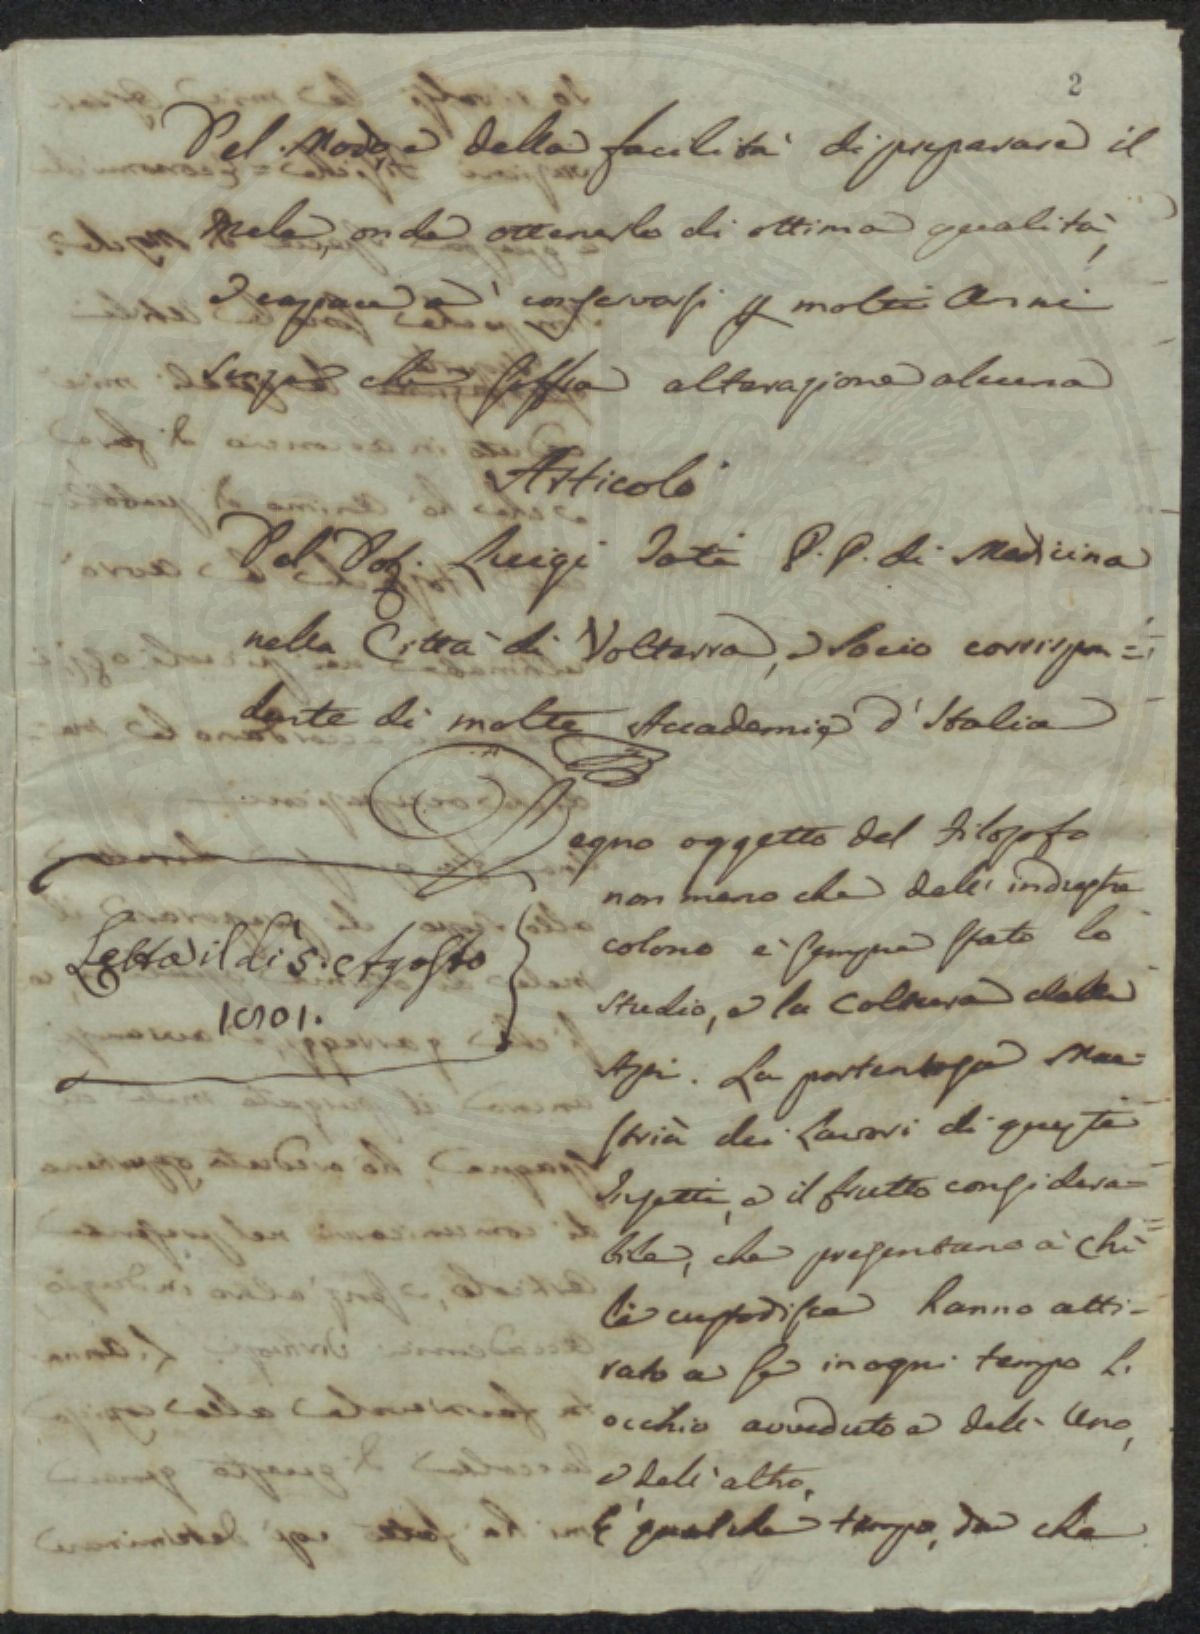 2
Del Modo e della facilità di preparare il
Mele, onde ottenerlo di ottima qualità,
e capace a' conservarsi p molti Anni
senza che soffra alterazione alcuna
Articolo
Del Dot. Luigi Tati P. P. di Medicina
nella Città di Volterra, e Socio corrispon=
dente di molte Accademie d'Italia
Degno oggetto del Filosofo
non meno che dell' industre
colono è sempre stato lo
studio, e la coltura delle
Api. La portentosa Mae=
stria dei Lavori di questi
Insetti, e il frutto considera=
bile, che presentano a' chi
li custodisce hanno atti=
rato a se in ogni tempo l'
occhio avveduto e dell' Uno,
e dell' altro.
E' qualche tempo, da che
Letta il dì 5. Agosto
1801.